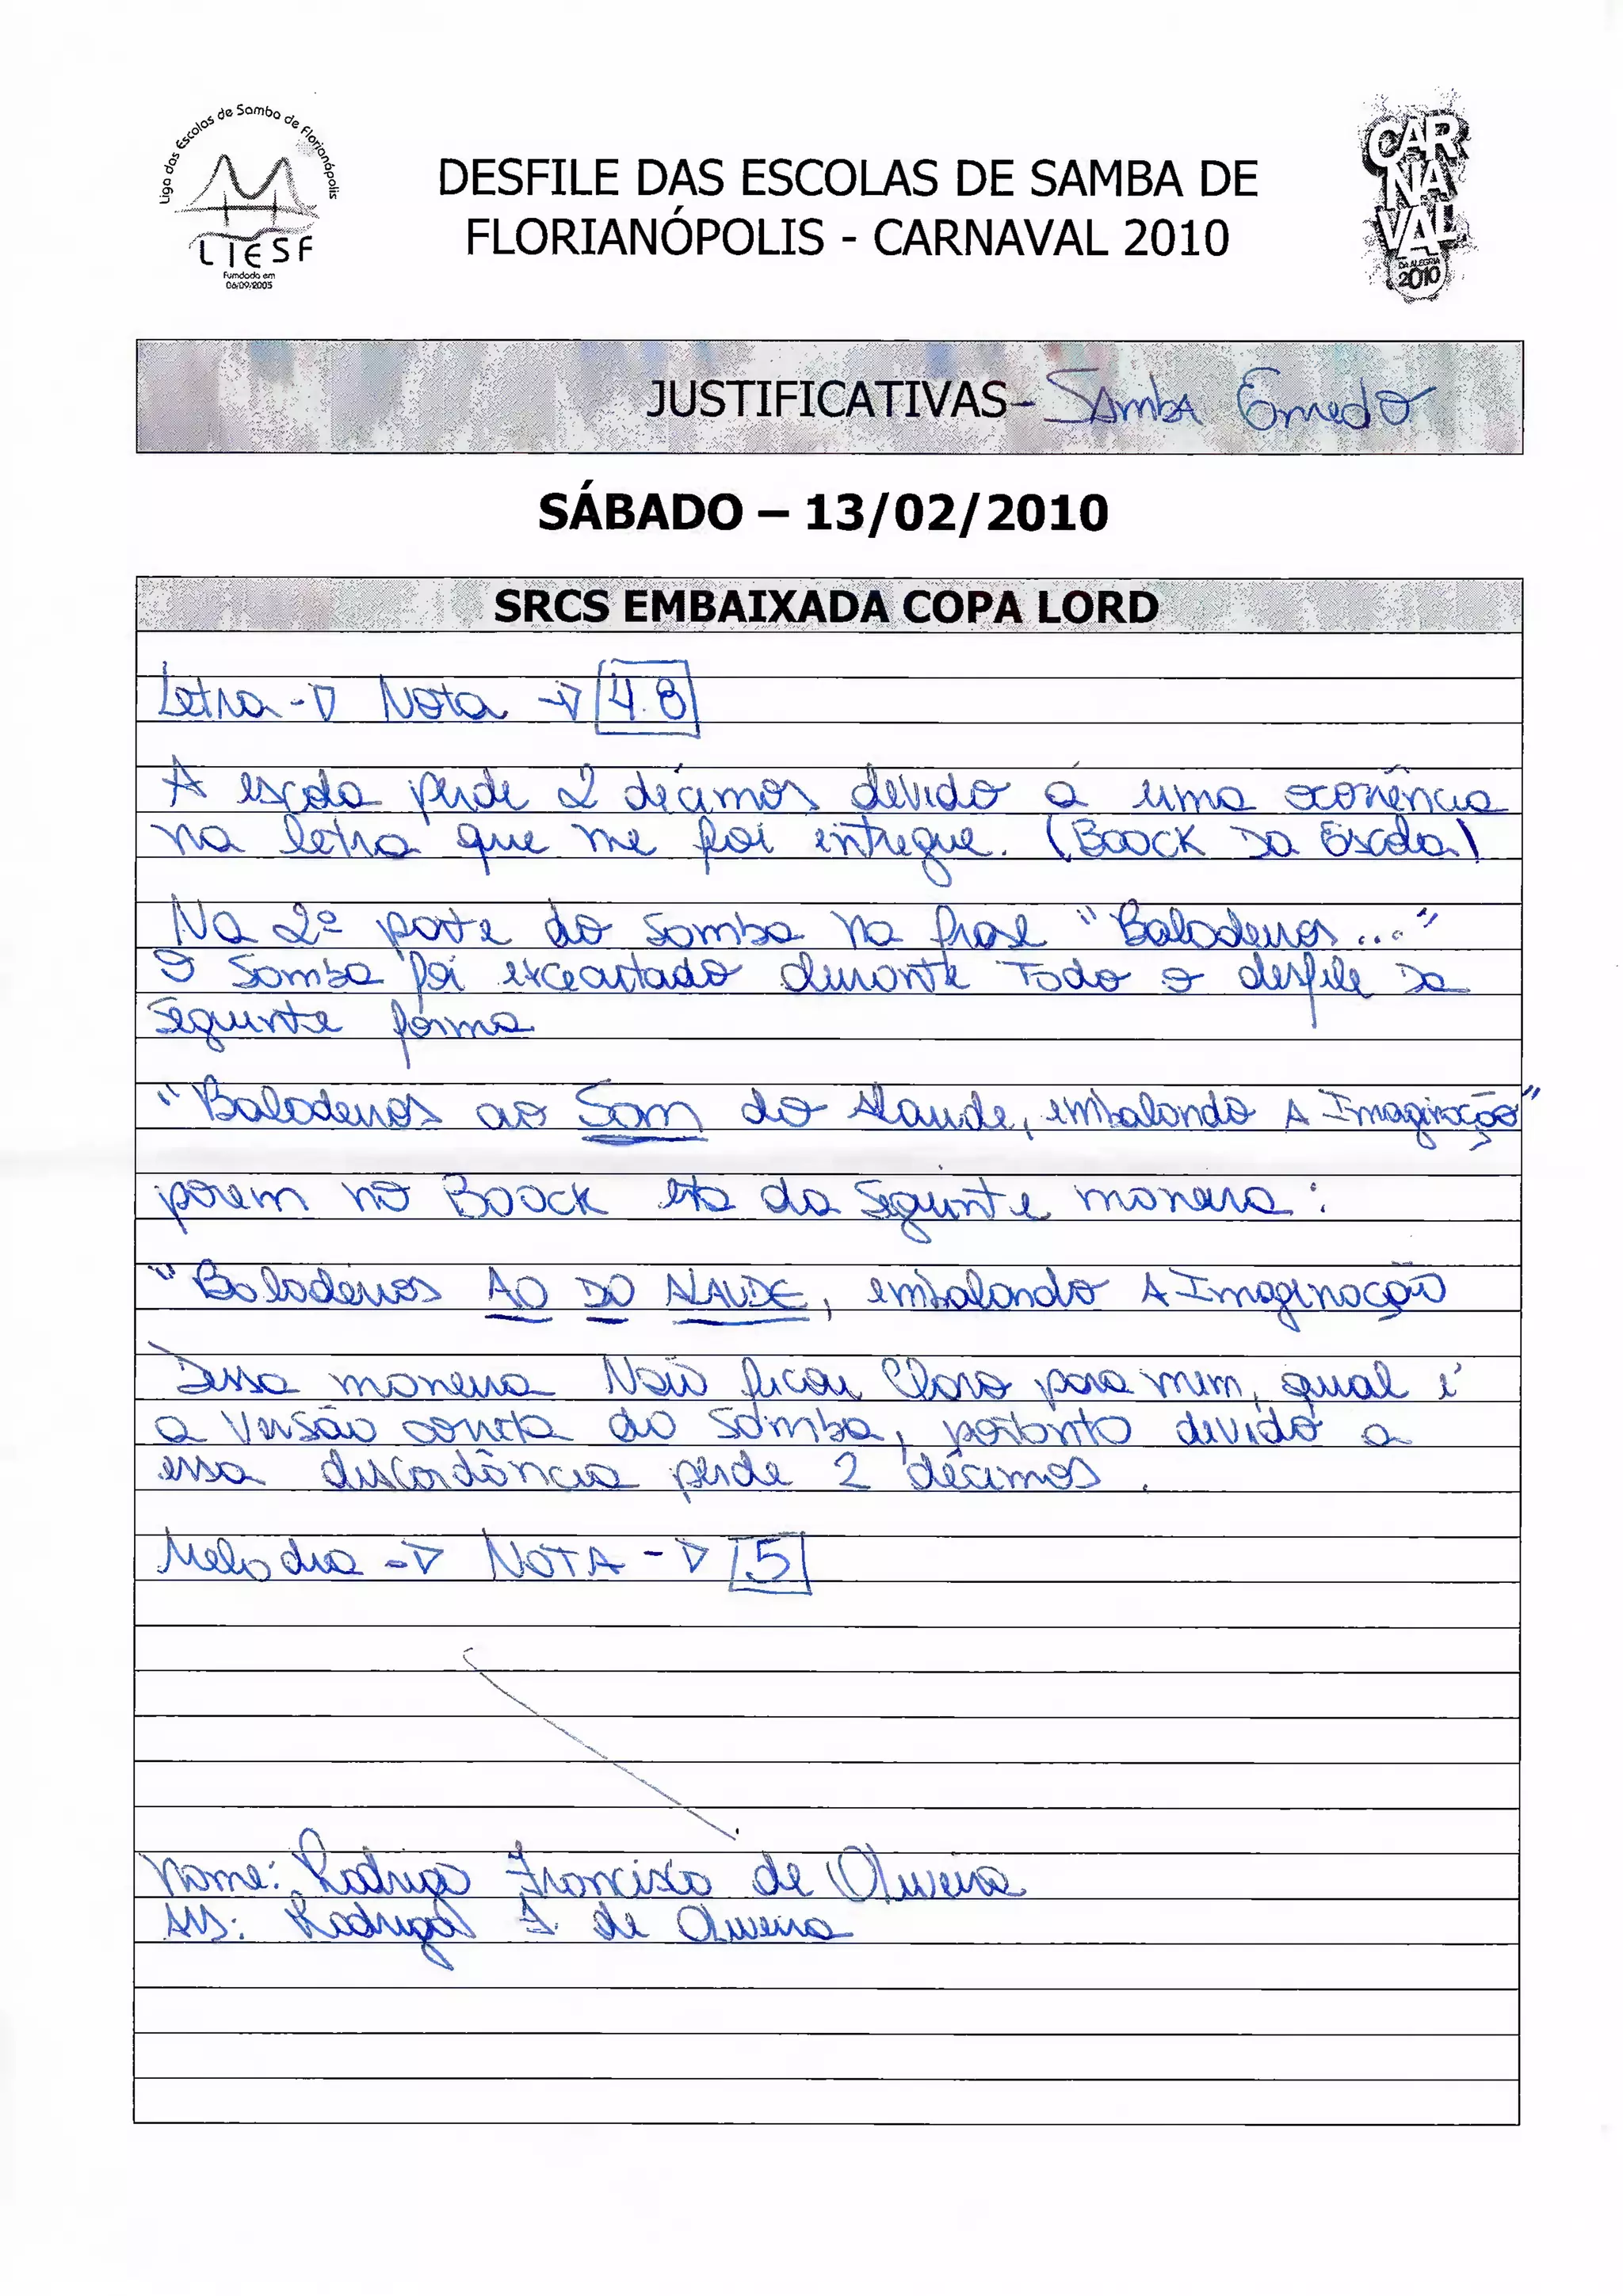 Liga das Escolas de Samba de Florianópolis
LIESF
Fundada em
06/09/2005
DESFILE DAS ESCOLAS DE SAMBA DE
FLORIANÓPOLIS - CARNAVAL 2010
CAR
NA
VAL
DA ALEGRIA
2010
JUSTIFICATIVAS- SAmbA Enredo
SÁBADO – 13/02/2010
SRCS EMBAIXADA COPA LORD
Letra -> Nota -> 4.8
A escola perde 2 décimos devido á uma ocorrência
na letra que me foi entregue. (Boock Da Escola)
Na 2ª parte do samba na frase "Baladeiros..."
O Samba foi excecutado durante Todo o desfile Da
Seguinte fórma
"Baladeiros ao Som do Alaude, embalando A Imaginação"
porem no Boock esta da Seguinte maneira:
"Baladeiros AO DO ALAUDE, embalando A Imaginação
Dessa maneira Não ficou Claro para mim, qual é
a Versão correta do Samba, portanto devido a
essa discordância perde 2 décimos.
Melodia -> NOTA -> 5
Nome: Rodrigo Francisco de Oliveira
ASS: Rodrigo F. de Oliveira